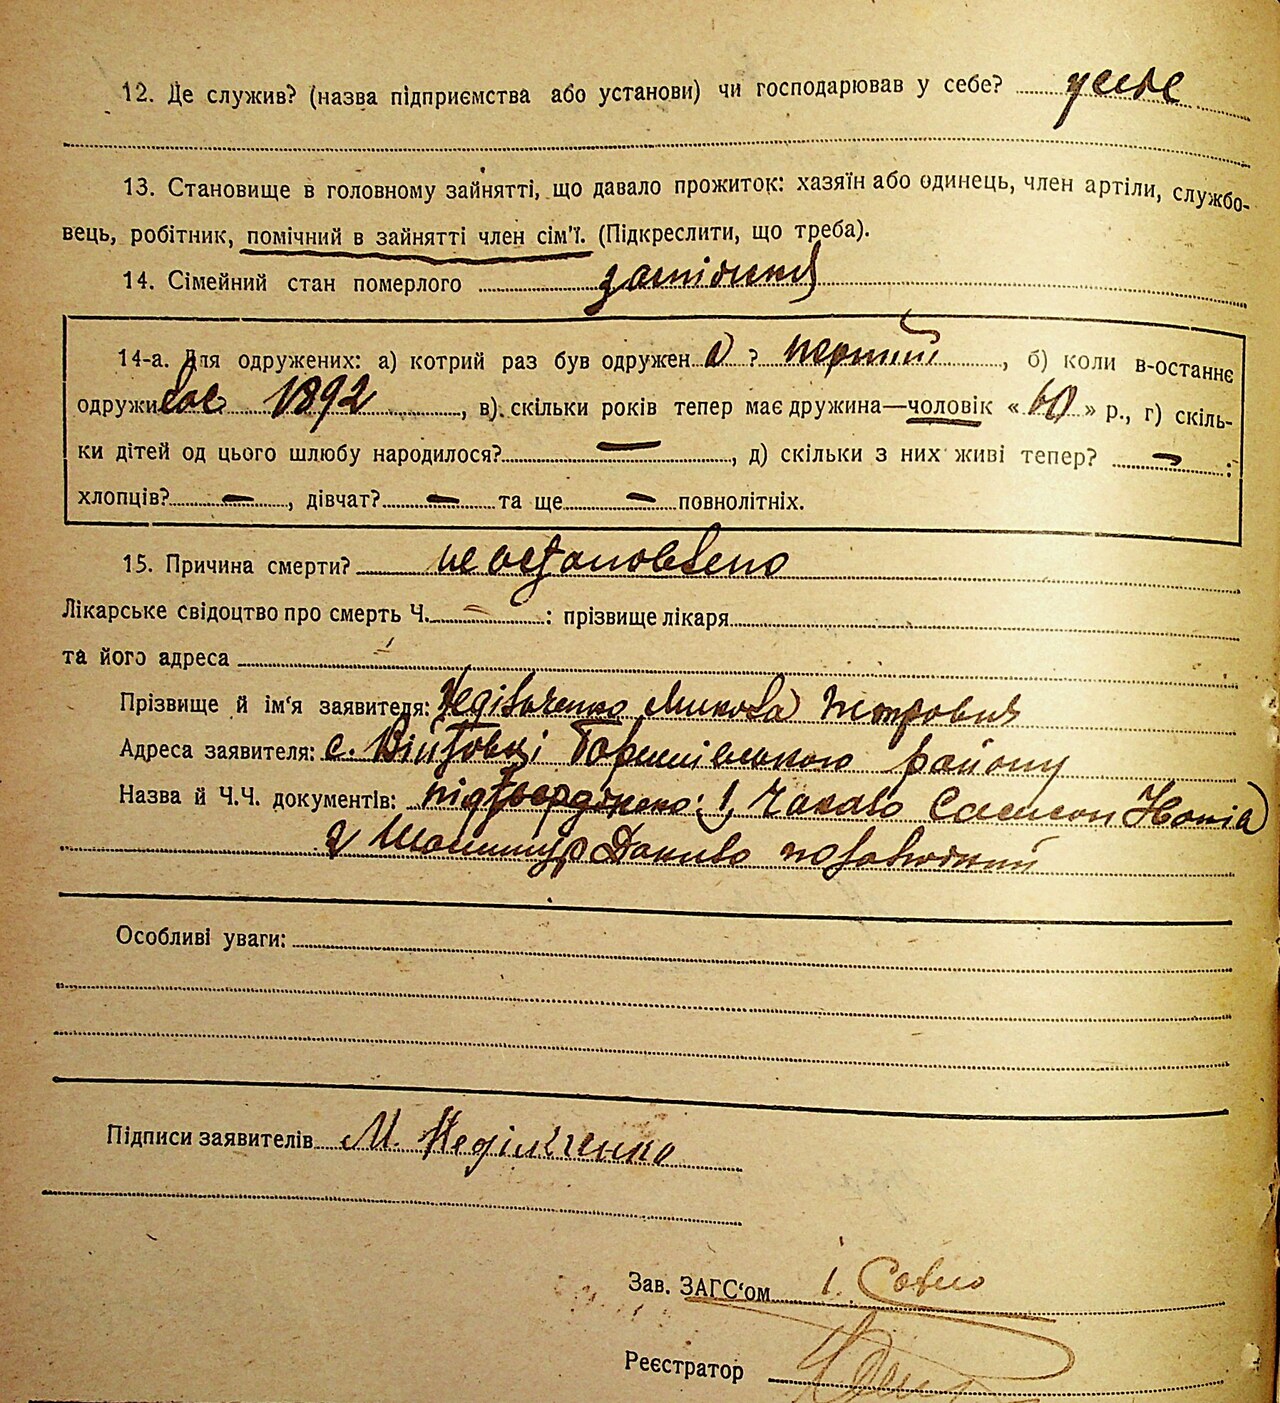 12. Де служив? (назва підприємства або установи) чи господарював у себе? у себе
13. Становище в головному зайнятті, що давало прожиток: хазяїн або одинець, член артіли, службо-
вець, робітник, помічний в зайнятті член сім'ї. (Підкреслити, що треба).
14. Сімейний стан померлого
14-а. Для одружених: а) котрий раз був одружен ? перший, б) коли в-останнє
одружи 1892, в). скільки років тепер має дружина—чоловік « 60 » р., г) скіль-
ки дітей од цього шлюбу народилося? —, д) скільки з них живі тепер? — :
хлопців? —, дівчат? — та ще — повнолітніх.
15. Причина смерти? не встановлено
Лікарське свідоцтво про смерть Ч. — : прізвище лікаря
та його адреса
Прізвище й ім'я заявителя: Недільченко Микола Петрович
Адреса заявителя: с. Війтовці району
Назва й Ч.Ч. документів: підтверджено: 1,
2 Данило
Особливі уваги:
Підписи заявителів М. Недільченко
Зав. ЗАГС'ом І.
Реєстратор